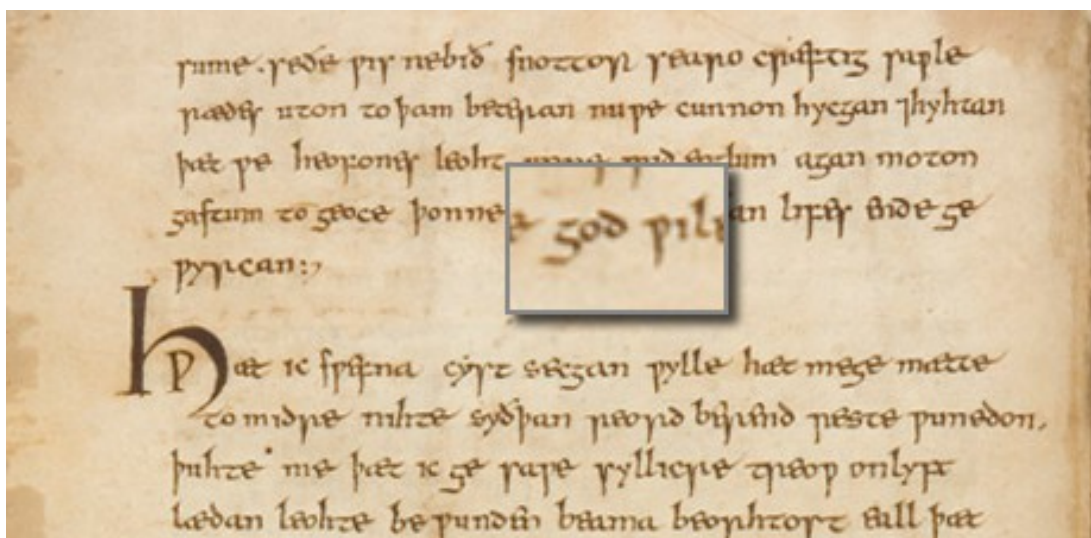 sume . se ðe ƿis ne bið snottor searo cræftig saƿle
rædes uton to þam beteran nu ƿe cunnon hycgan ⁊hyhtan
þæt ƿe heofones leoht agan moton
gastum to geoce þonne god ƿil an lifes ende ge
ƿyrcan:,
Hƿæt ic sƿefna cyst secgan ƿylle hæt me ge mætte
to midre nihte syðþan reord berend reste ƿunedon,
þuhte me þæt ic ge saƿe syllicre treoƿ onlyft
lædan leohte be ƿunden beama beorhtost eall þæt